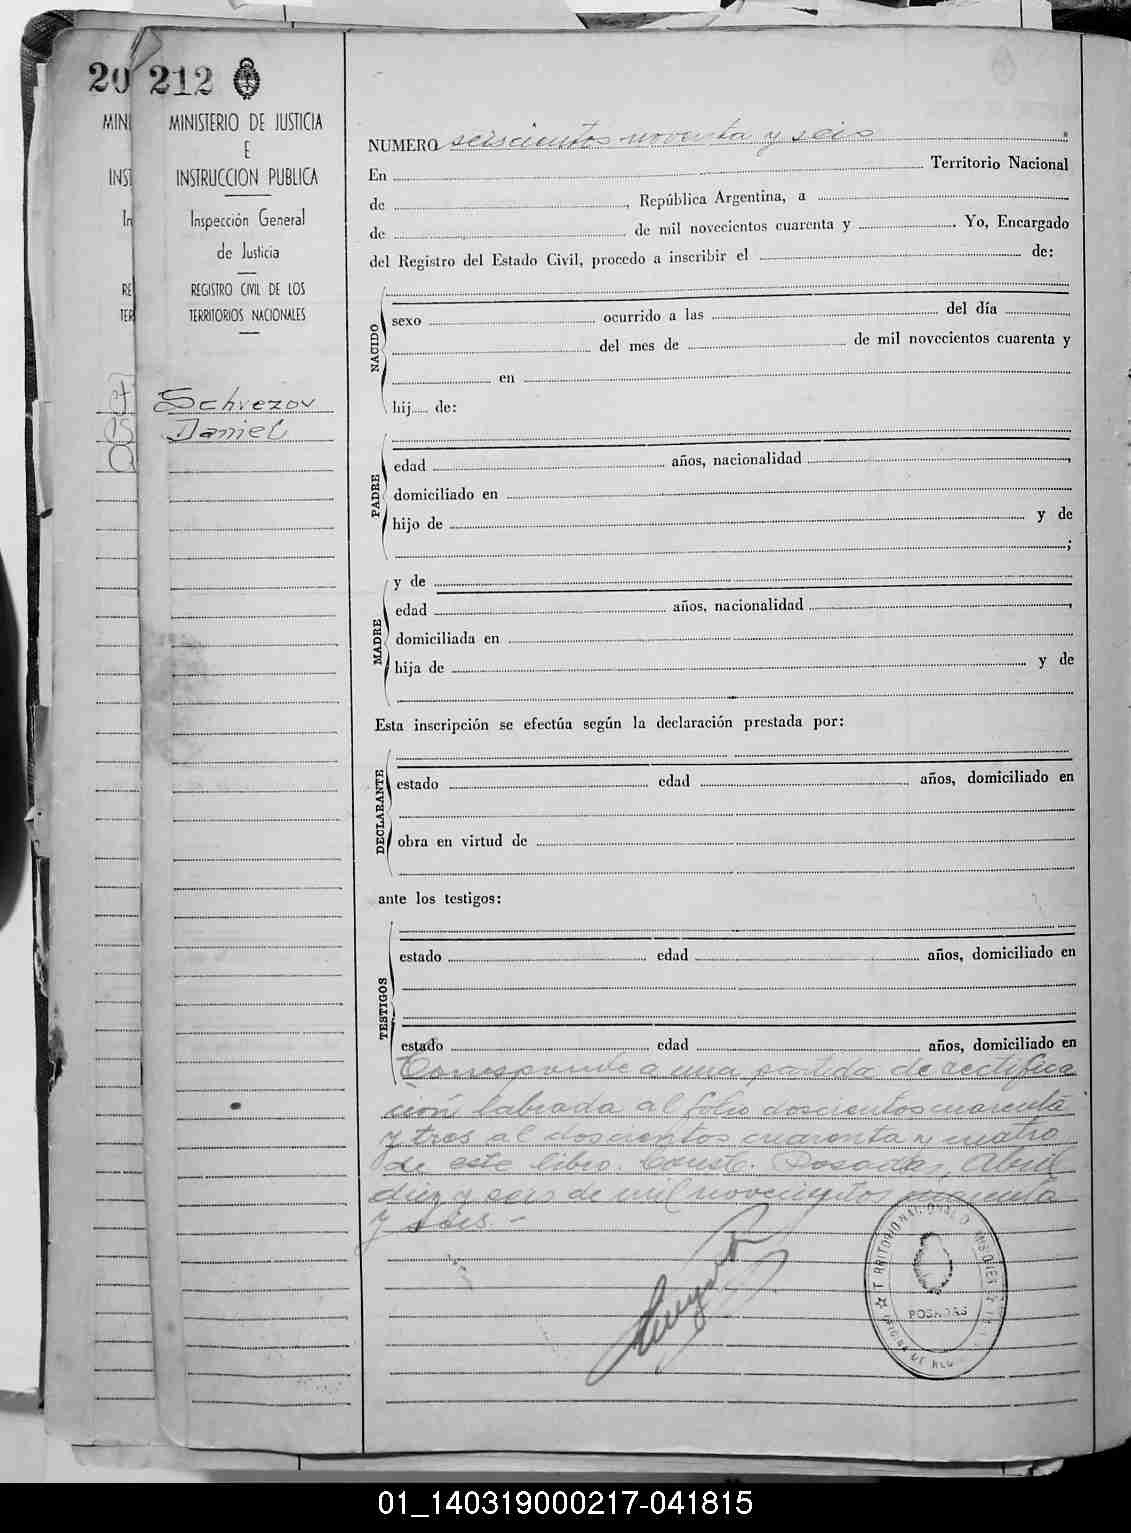 20 212
MINISTERIO DE JUSTICIA
E
INSTRUCCION PUBLICA
Inspección General
de Justicia
REGISTRO CIVIL DE LOS
TERRITORIOS NACIONALES
Schvezov
Daniel
NUMERO seiscientos noventa y seis
En Territorio Nacional
de , República Argentina, a
de de mil novecientos cuarenta y . Yo, Encargado
del Registro del Estado Civil, procedo a inscribir el de:
NACIDO
sexo ocurrido a las del día
del mes de de mil novecientos cuarenta y
en
hij de:
PADRE
edad años, nacionalidad ,
domiciliado en
hijo de y de
;
MADRE
y de
edad años, nacionalidad ,
domiciliada en
hija de y de
Esta inscripción se efectúa según la declaración prestada por:
DECLARANTE
estado edad años, domiciliado en
obra en virtud de
ante los testigos:
TESTIGOS
estado edad años, domiciliado en
estado edad años, domiciliado en
Corresponde a una partida de rectifica
ción labrada al folio doscientos cuarenta
y tres al doscientos cuarenta y cuatro
de este libro. Conste. Posadas, Abril
diez y seis de mil novecientos cuarenta
y seis.-
POSADAS
01_140319000217-041815